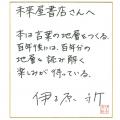 未来屋書店さんへ
本は言葉の地層をつくる。
百年後には、百年分の
地層を読み解く
楽しみが待っている。
伊与原 新